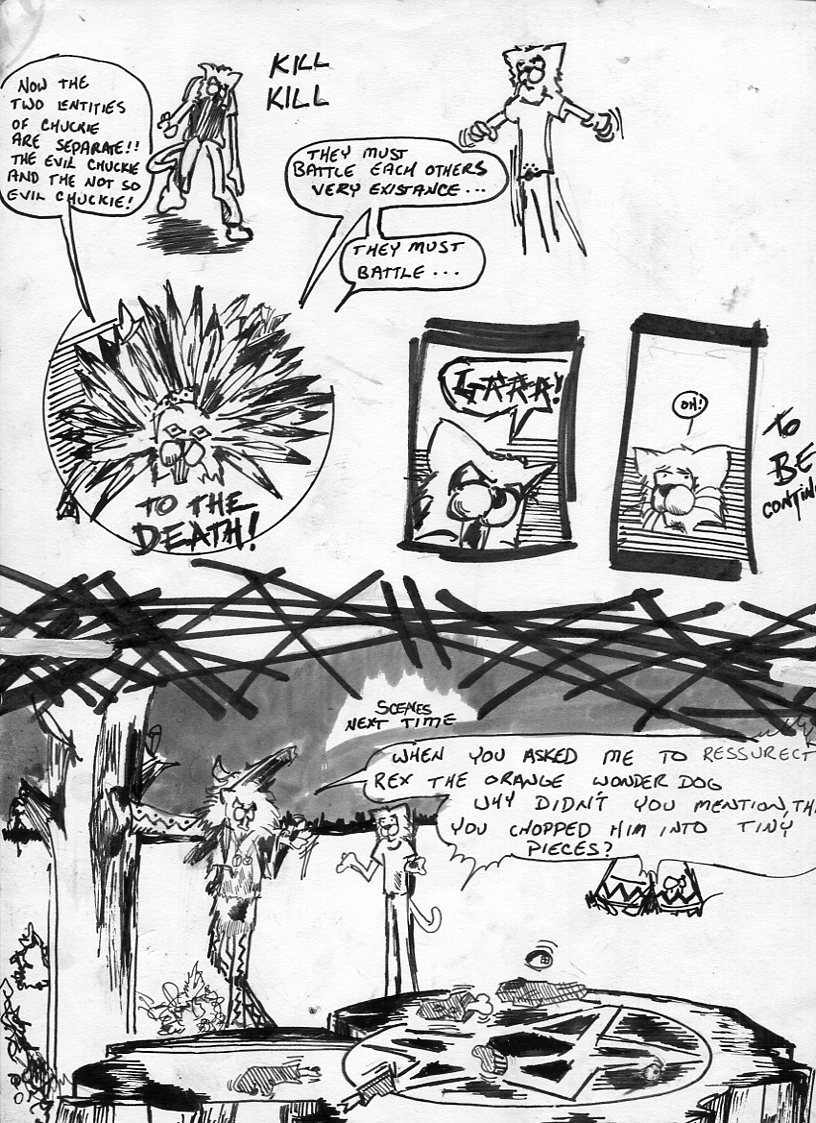 NOW THE
TWO ENTITIES
OF CHUCKIE
ARE SEPARATE!!
THE EVIL CHUCKIE
AND THE NOT SO
EVIL CHUCKIE!
KILL
KILL
THEY MUST
BATTLE EACH OTHERS
VERY EXISTANCE...
THEY MUST
BATTLE...
TO THE
DEATH!
GAAA!
OH!
TO
BE
CONTIN
SCENES
NEXT TIME
WHEN YOU ASKED ME TO RESSURECT
REX THE ORANGE WONDER DOG
WHY DIDN'T YOU MENTION, THA
YOU CHOPPED HIM INTO TINY
PIECES?